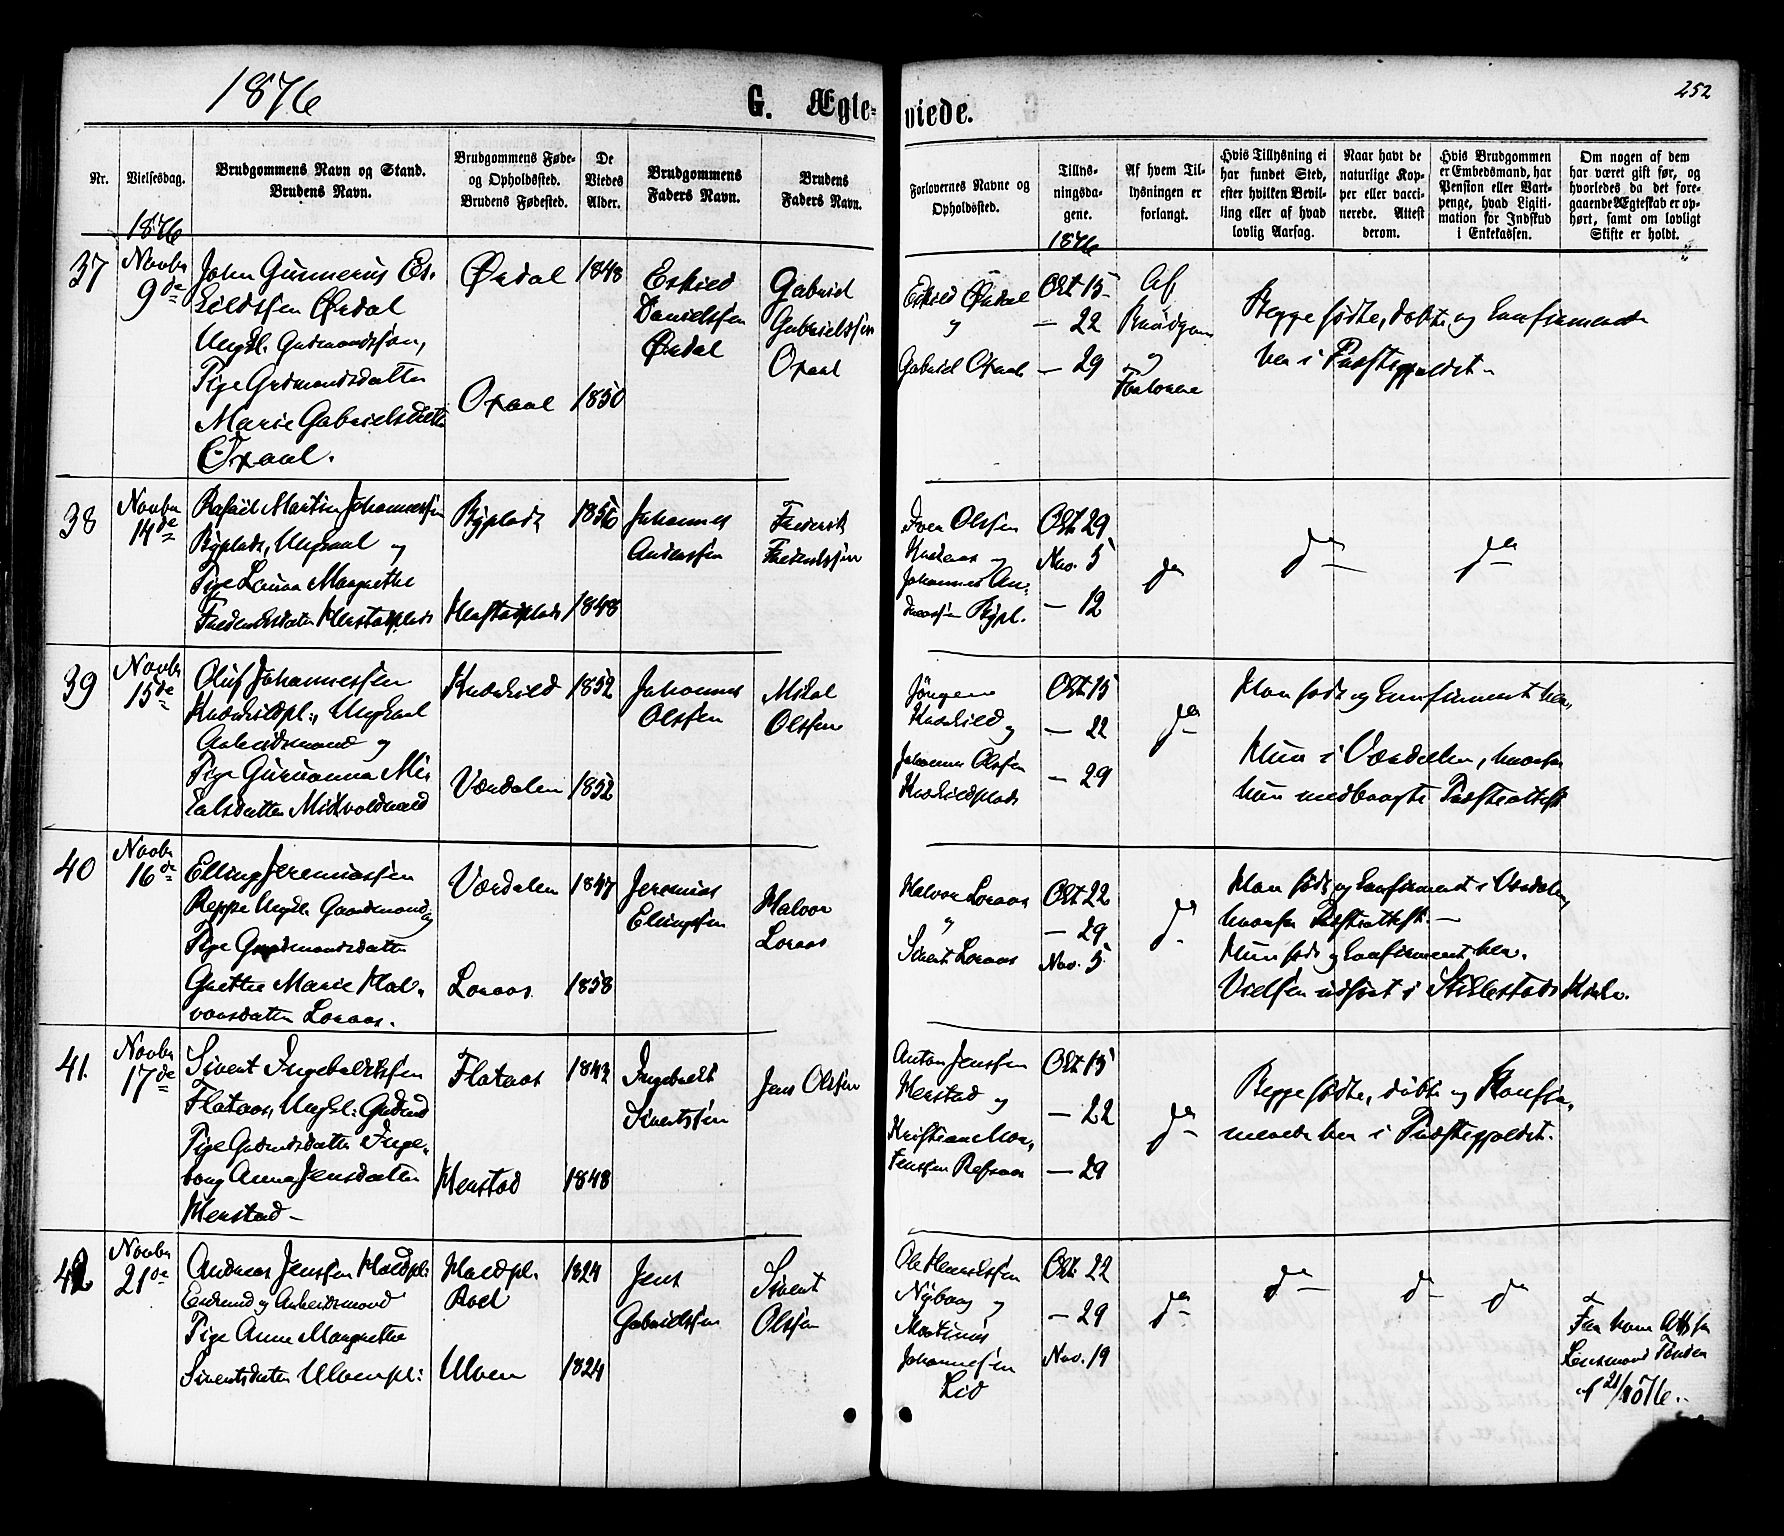 1876
252
G. Ægte-
viede.
Nr.
Vielsesdag.
Brudgommens Navn og Stand.
Brudens Navn.
Brudgommens Føde-
og Opholdssted.
Brudens Fødested.
De
Viedes
Alder.
Brudgommens
Faders Navn.
Brudens
Faders Navn.
Forlovernes Navne og
Opholdssted.
Tillys-
ningsda-
gene.
Af hvem Til-
lysningen er
forlangt.
Hvis Tillysning ei
har fundet Sted,
efter hvilken Bevil-
ling eller af hvad
lovlig Aarsag.
Naar havt de
naturlige Kop-
per eller vacci-
nerede. Attest
derom.
Hvis Brudgommen
er Embedsmand, har
Pension eller Vart-
penge, hvad Ligiti-
mation for Indskud
i Enkekassen.
Om nogen af dem
har været gift før, og
hvorledes da det fore-
gaaende Ægteskab er op-
hørt, samt om lovligt
Skifte er holdt.
1876
1876
37
Novbr
9de
John Gunnerus Es-
kildssen Ørdal
Ungkl. Gudmondssøn,
Pige Grdmandsdatter
Marie Gabrielsdatter
Oxaal.
Ørdal
Oxaal
1848
1850
Eskild
Danielssen
Ørdal
Gabriel
Gabrielssen
Oxaal
Eskild Ørdal
og
Gabriel Oxaal
Okt 15
— 22
— 29
Af
Brudgom
og
Forlovere
Begge fødte, døbte og konfirmerede
her i Præstegjældet.
38
Novbr
14de
Rafael Martin Johannessen
Byplads, Ungkarl og
Pige Laura Margrethe
Frederiksdatter Herstadplads
Byplads
Herstadplads
1856
1848
Johannes
Anderssen
Frederik
Frederikssen
Iver Olssen
og
Johannes An-
derssen Bypl.
Okt. 29
Nov. 5
— 12
do
do
do
39
Novbr
15de
Oluf Johannessen
Kvæskildpl., Ungkarl
Arbeidsmand og
Pige Guruanna Mi-
kalsdatter Midtvoldvald
Kvæskild
Værdalen
1852
1852
Johannes
Olssen
Mikal
Olssen
Jørgen
Kvæskild og
Johannes Olssen
Kvæskildplads
Okt 15
— 22
— 29
do
Han født og konfirmeret her,
Hun i Værdalen, hvorfra
hun medbragte Præsteattest
40
Novbr
16de
Elling Jeremiassen
Reppe Ungkl. Gaardmand og
Pige Grdmandsdatter
Grethe Marie Hal-
vorsdatter Loraas.
Værdalen
Loraas
1847
1858
Jeremias
Ellingssen
Halvor
Loraas
Halvor Loraas
"
Sivert Loraas
Okt 22
— 29
Nov. 5
do
Han født og konfirmeret i Værdalen,
hvorfra Præsteattest. —
Hun født og konfirmeret her.
Vielsen udført i Stiklestads Kirke.
41.
Novbr
17de
Sivert Ingebrigtssen
Flataas, Ungkl: Grdmd
Pige Grdmdsdatter Inge-
borg Anna Jensdatter
Herstad —
Flataas
Herstad
1843
1848
Ingebrigt
Sivertssen
Jens Olssen
Anton Jenssen
Herstad og
Kristian Mor-
tenssen Refsaas
Okt 15
— 22
— 29
do
Begge fødte, døbte og Konfir-
merede her i Præstegjældet.
42
Novbr
21de
Andreas Jenssen Haldpl:
og Arbeidsmand
Pige Anne Margrethe
Sivertsdatter Ulvenpl:
Haldpl.
Ulven
1824
1824
Jens
Gabrielssen
Sivert
Olssen
Ole Henrikssen
Nyborg og
Martinus
Johannessen
Lid
Okt 22
— 29
Nov. 19
do
do
do
do
Lensmand
21/1876.